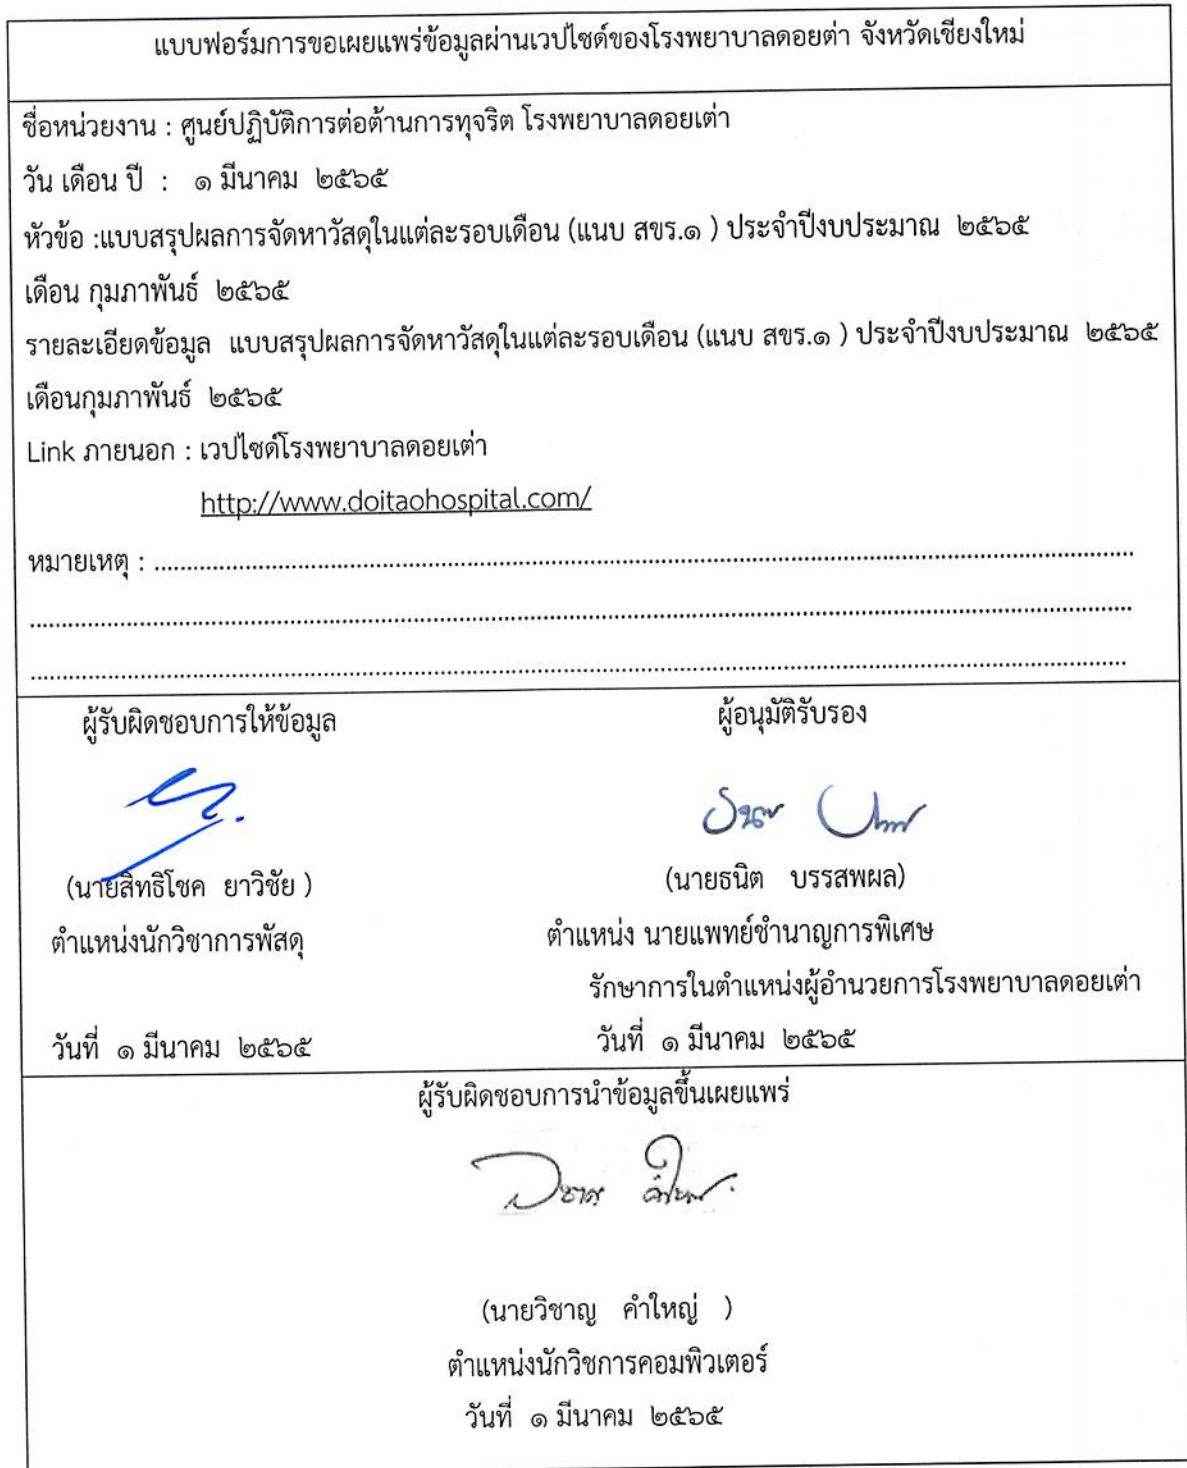 แบบฟอร์มการขอเผยแพร่ข้อมูลผ่านเวปไซด์ของโรงพยาบาลดอยต่า จังหวัดเชียงใหม่
ชื่อหน่วยงาน : ศูนย์ปฏิบัติการต่อต้านการทุจริต โรงพยาบาลดอยเต่า
วัน เดือน ปี : ๑ มีนาคม ๒๕๖๕
หัวข้อ :แบบสรุปผลการจัดหาวัสดุในแต่ละรอบเดือน (แนบ สขร.๑ ) ประจำปีงบประมาณ ๒๕๖๕
เดือน กุมภาพันธ์ ๒๕๖๕
รายละเอียดข้อมูล แบบสรุปผลการจัดหาวัสดุในแต่ละรอบเดือน (แนบ สขร.๑ ) ประจำปีงบประมาณ ๒๕๖๕
เดือนกุมภาพันธ์ ๒๕๖๕
Link ภายนอก : เวปไซด์โรงพยาบาลดอยเต่า
http://www.doitaohospital.com/
หมายเหตุ : ........................................................................
........................................................................
........................................................................
ผู้รับผิดชอบการให้ข้อมูล
(นายสิทธิโชค ยาวิชัย )
ตำแหน่งนักวิชาการพัสดุ
วันที่ ๑ มีนาคม ๒๕๖๕
ผู้อนุมัติรับรอง
(นายธนิต บรรสพผล)
ตำแหน่ง นายแพทย์ชำนาญการพิเศษ
รักษาการในตำแหน่งผู้อำนวยการโรงพยาบาลดอยเต่า
วันที่ ๑ มีนาคม ๒๕๖๕
ผู้รับผิดชอบการนำข้อมูลขึ้นเผยแพร่
(นายวิชาญ คำใหญ่ )
ตำแหน่งนักวิชการคอมพิวเตอร์
วันที่ ๑ มีนาคม ๒๕๖๕